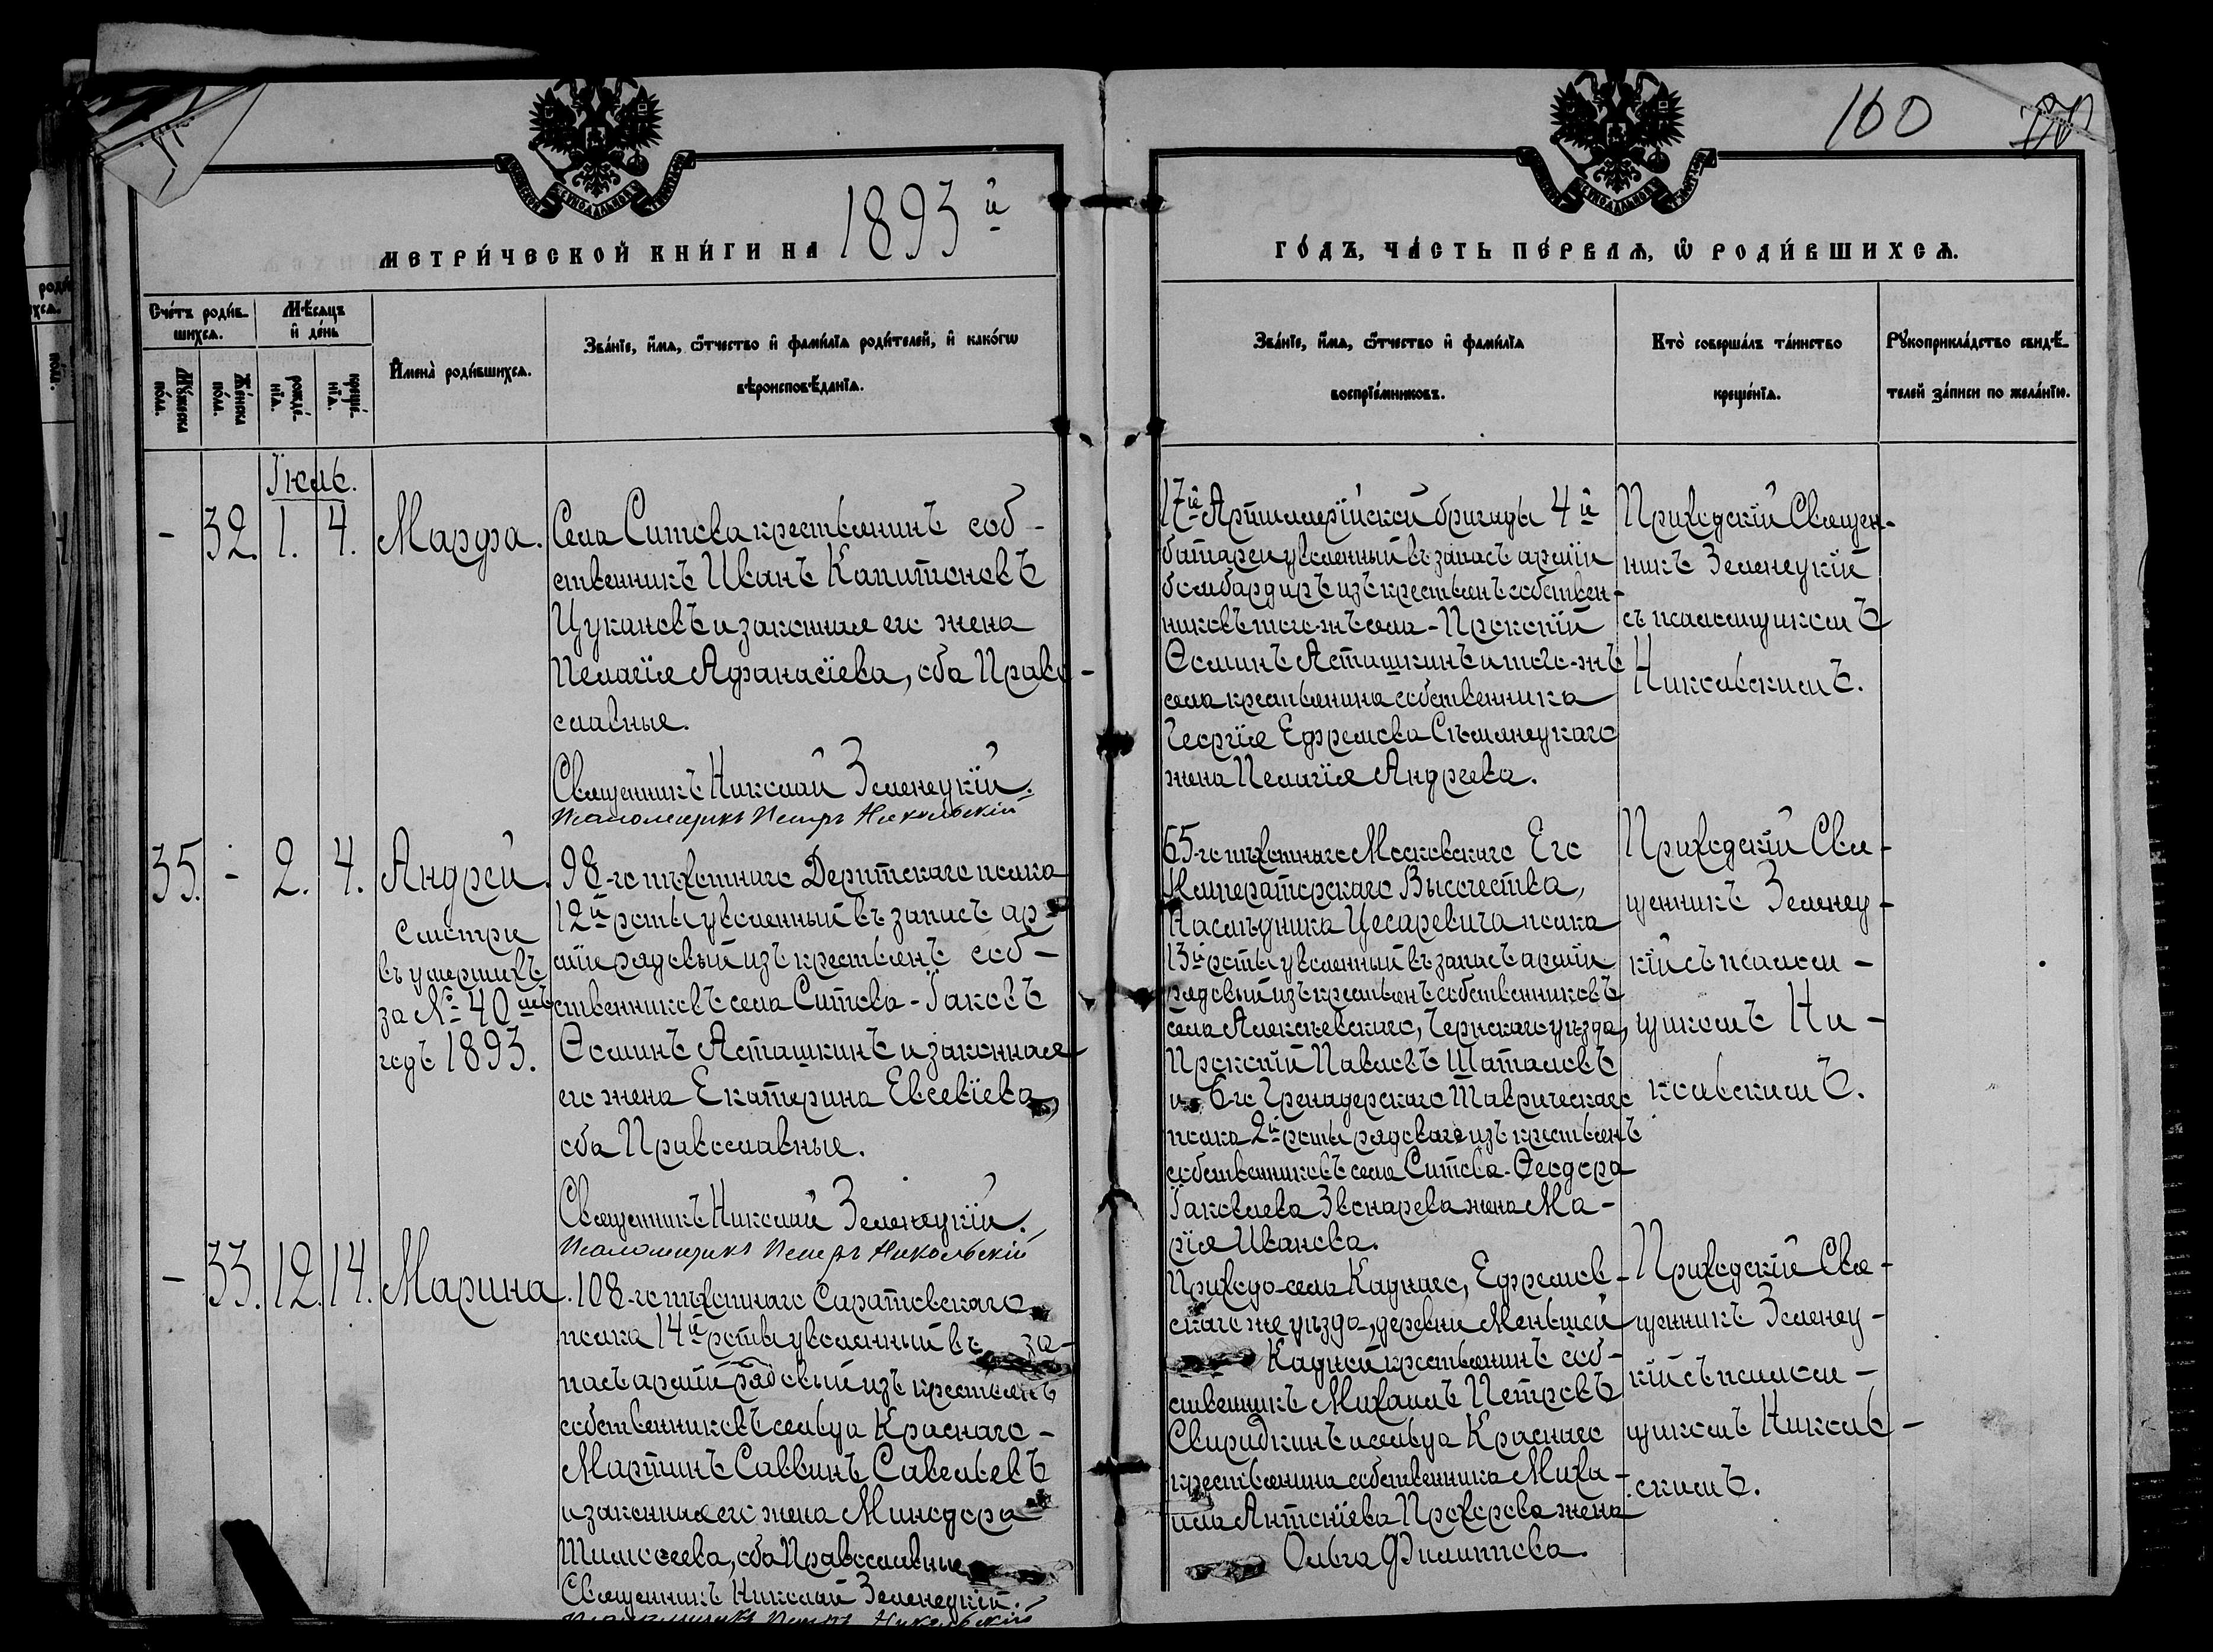 100
МЕТРИ́ЧЕСКОЙ КНИ́ГИ НА 1893й
ГО́ДЪ, ЧА́СТЬ ПЕ́РВАѦ, Ѡ РОДИ́ВШИХСѦ.
Сче́тъ роди́в-
шихсѧ.
Мѣ́сѧцъ
и де́нь
Мꙋ́жеска
по́ла.
Же́нска
по́ла.
рожде́-
нїѧ.
креще́-
нїѧ.
И̓мена̀ роди́вшихсѧ.
Зва́нїе, и́мѧ, ѻ́тчество и фами́лїѧ роди́телей, и како́гѡ
вѣроисповѣ́данїѧ.
Зва́нїе, и́мѧ, ѻ́тчество и фами́лїѧ
воспрїе́мниковъ.
Кто̀ соверша́лъ та́инство
креще́нїѧ.
Рꙋкоприкла́дство свидѣ́-
телей за́писи по жела́нїю.
Іюль.
- 32. 1. 4. Марфа.
Села Ситова крестьянинъ соб-
ственникъ Иванъ Капитоновъ
Цукановъ и законная его жена
Пелагія Афанасіева, оба Право-
славные.
Священникъ Николай Зеленецкій.
Псаломщикъ Петръ Никольскій
17й Артиллерійской бригады 4й
батареи уволенный въ запасъ арміи
бомбардиръ изъ крестьянъ собствен-
никовъ того-жъ села - Прокопій
Ѳоминъ Асташкинъ и того-жъ
села крестьянина собственника
Георгія Ефремова Съмынецкаго
жена Пелагія Андреева.
Приходскій Священ-
никъ Зеленецкій
съ псаломщикомъ
Никольскимъ.
35. - 2. 4. Андрей.
Смотри
въ умершихъ
за № 40мъ
годъ 1893.
98-го пѣхотнаго Дерптскаго полка
12й роты уволенный въ запасъ ар-
міи рядовый изъ крестьянъ соб-
ственниковъ села Ситова - Іаковъ
Ѳоминъ Асташкинъ и законная
его жена Екатерина Евсевіева,
оба Православные.
Священникъ Николай Зеленецкій.
Псаломщикъ Петръ Никольскій
65-го пѣхотнаго Московскаго Его
Императорскаго Высочества,
Наслѣдника Цесаревича полка
13й роты уволенный въ запасъ арміи
рядовый изъ крестьянъ собственниковъ
села Алексѣевскаго, Чернскаго уѣзда,
Прокопій Павловъ Шаталовъ
и 6-го Гренадерскаго Таврическаго
полка 2й роты рядоваго изъ крестьянъ
собственниковъ села Ситова - Ѳеодора
Іаковлева Звонарева жена Ма-
рія Иванова.
Приходскій Свя-
щенникъ Зеленец-
кій съ псалом-
щикомъ Ни-
кольскимъ.
- 33. 12. 14. Марина.
108-го пѣхотнаго Саратовскаго
полка 14й роты уволенный въ за-
пасъ арміи рядовый изъ крестьянъ
собственниковъ сельца Краснаго -
Мартинъ Саввинъ Савельевъ
и законная его жена Минодора
Тимоѳеева, оба Православные
Священникъ Николай Зеленецкій.
Псаломщикъ Петръ Никольскій
Прихода села Каднаго, Ефремов-
скаго же уѣзда, деревни Меньшой
Кадной крестьянинъ соб-
ственникъ Михаилъ Петровъ
Свиридкинъ и сельца Краснаго
крестьянина собственника Миха-
ила Антоніева Прохорова жена
Ольга Филиппова.
Приходскій Свя-
щенникъ Зеленец-
кій съ псалом-
щикомъ Николь-
скимъ.